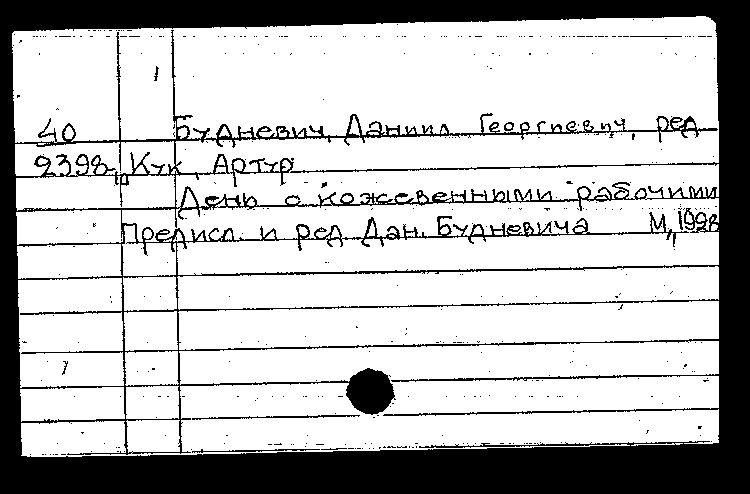 40 Будневич, Даниил Георгиевич, ред
9398 Кук, Артур
День с кожевенными рабочими
Предисл. и ред. Дан. Будневича М., 1928